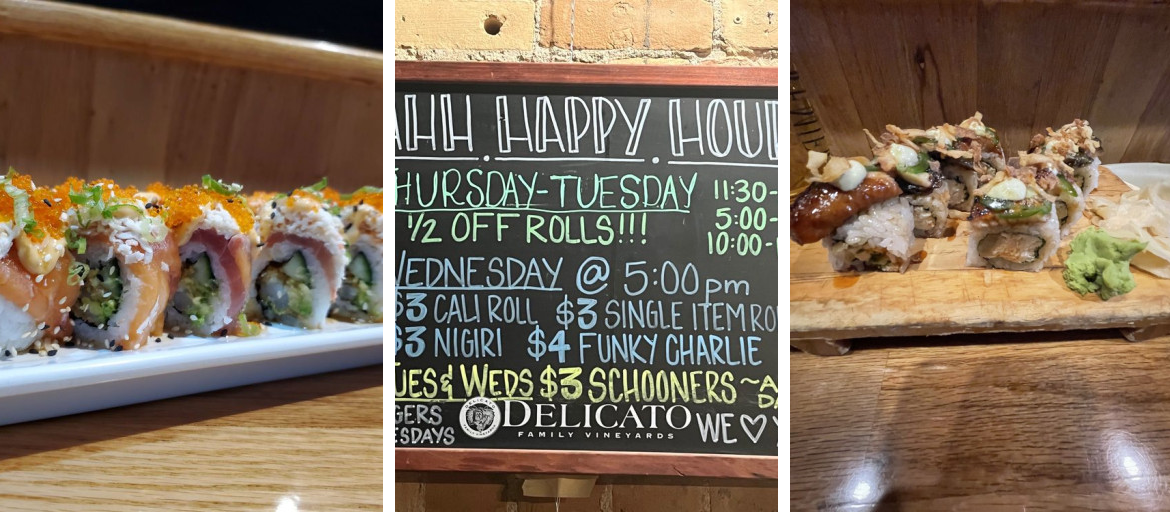 AHH HAPPY HOUR
HURSDAY-TUESDAY 11:30-
1/2 OFF ROLLS!!! 5:00-
10:00-
WEDNESDAY @ 5:00pm
$3 CALI ROLL $3 SINGLE ITEM RO
$3 NIGIRI $4 FUNKY CHARLIE
UES & WEDS $3 SCHOONERS ~A
GERS
ESDAYS
DELICATO
FAMILY VINEYARDS
WE ♡